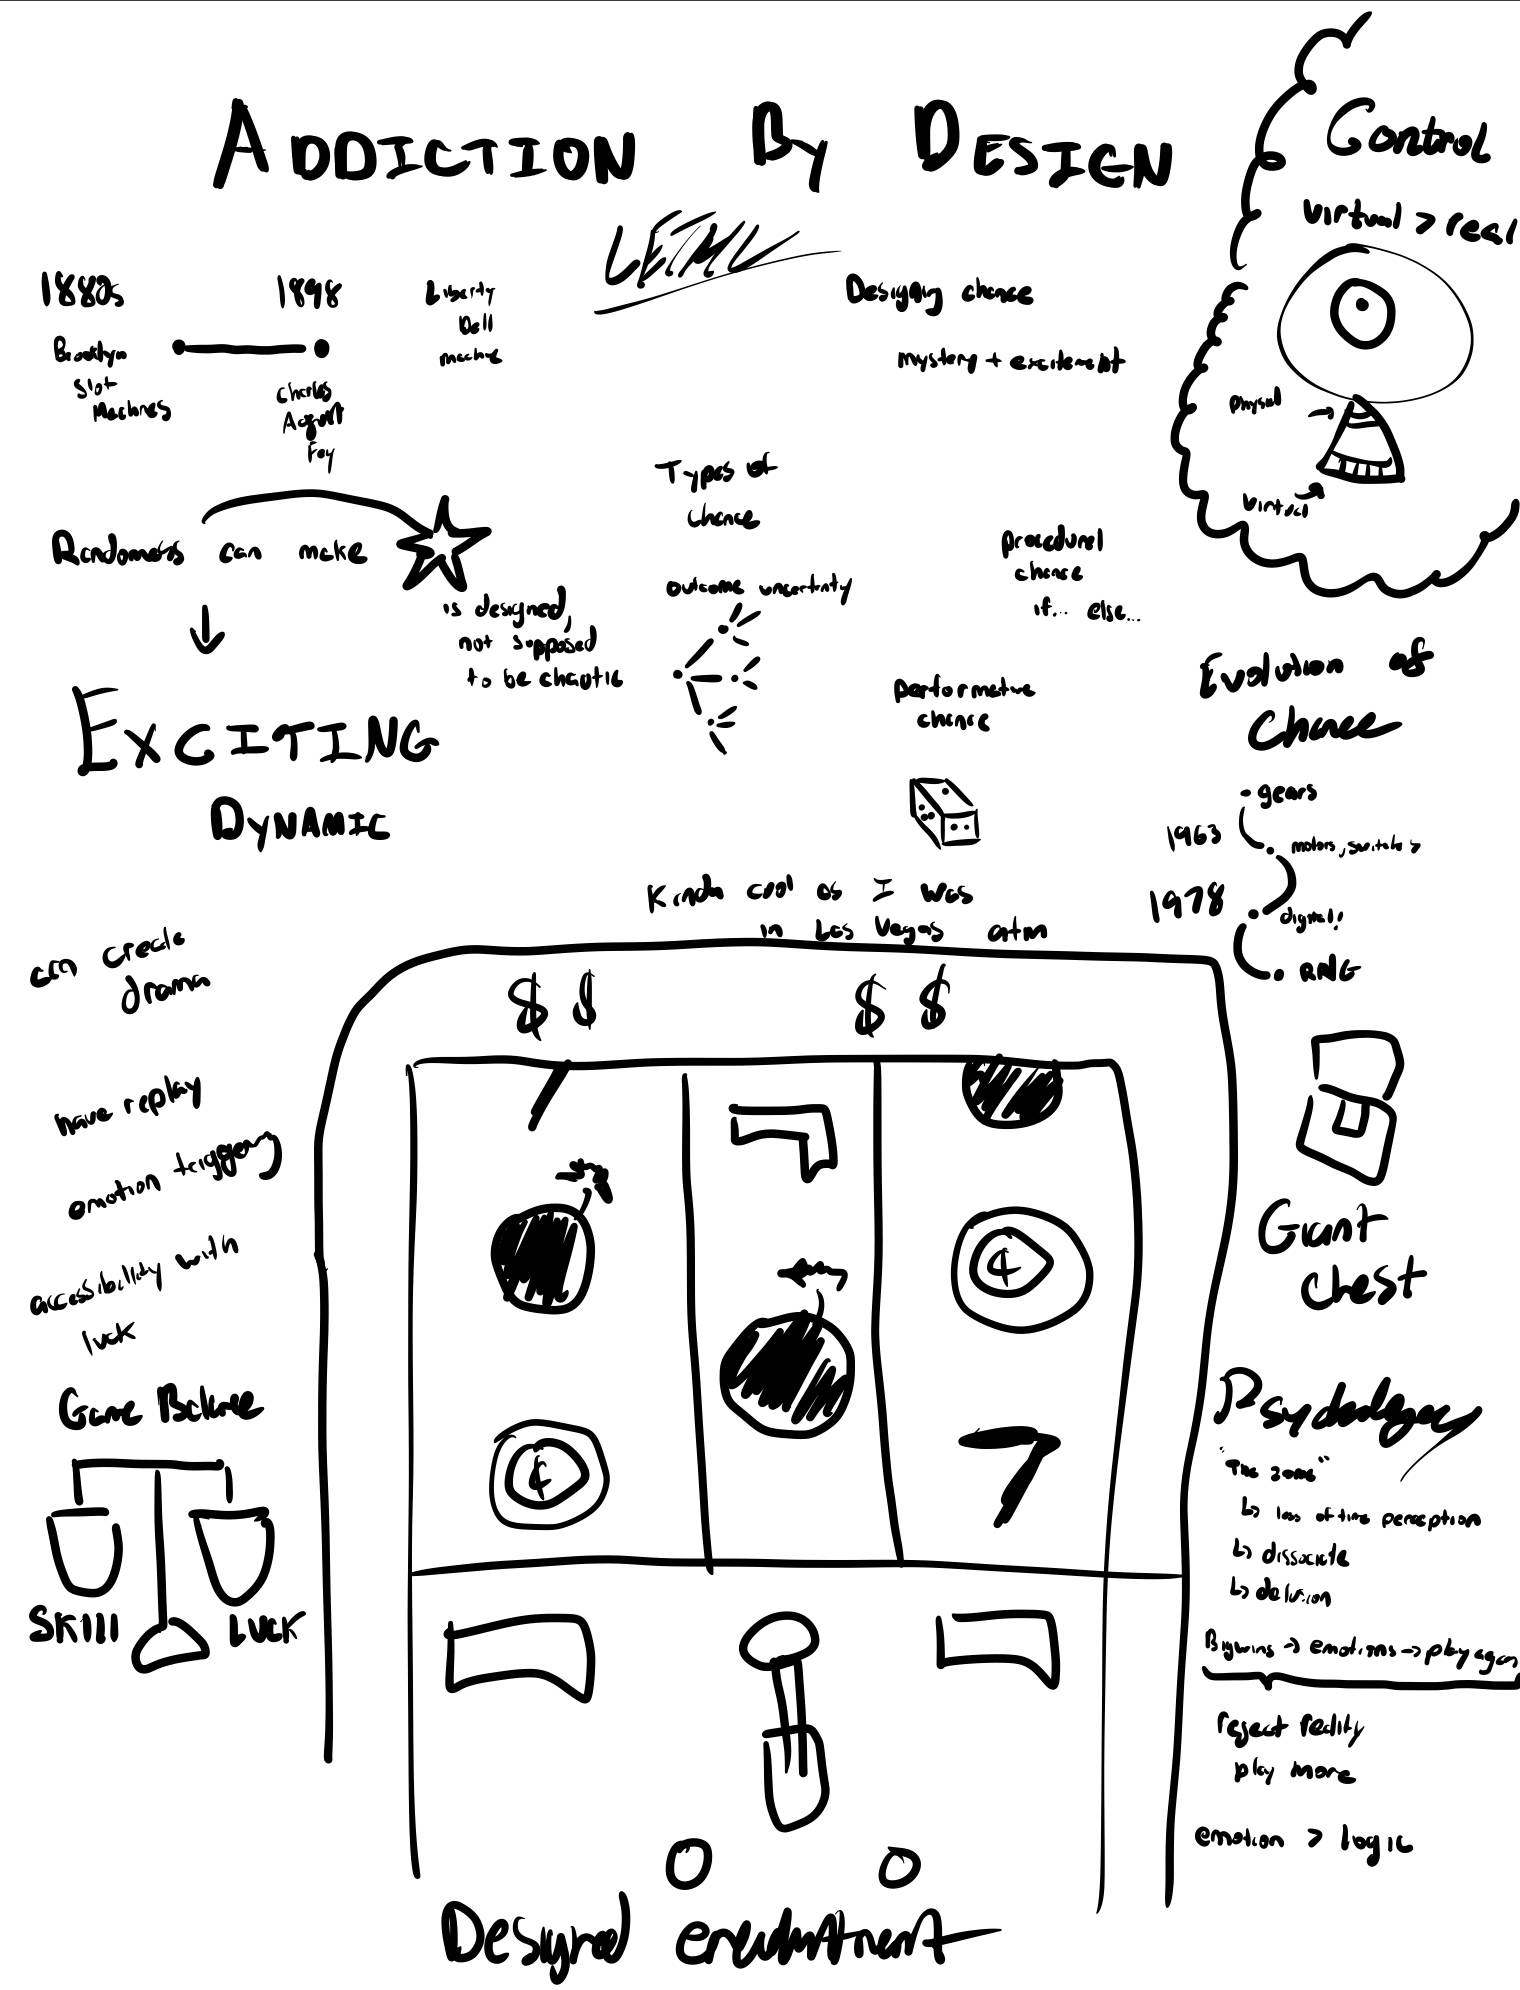 ADDICTION By DESIGN
Control
virtual > real
physical
virtual
1880s
Brooklyn
Slot
Machines
1898
Charles
August
Fey
Liberty
Bell
machine
Designing chance
mystery + excitement
Randomness can make
is designed,
not supposed
to be chaotic
EXCITING
DYNAMIC
Types of
chance
outcome uncertainty
procedural
chance
if... else...
performative
chance
Evolution of
Chance
gears
1963
motors, switches
1978
digital!
RNG
Kinda cool as I was
in Las Vegas atm
can create
drama
have replay
emotion triggering
accessibility with
luck
Game Balance
SKIll
LUCK
$ $ $ $
7
¢
¢
7
Giant
chest
Psychology
"The zone"
loss of time perception
dissociate
delusion
Big wins → emotions → play again
reject reality
play more
emotion > logic
Designed